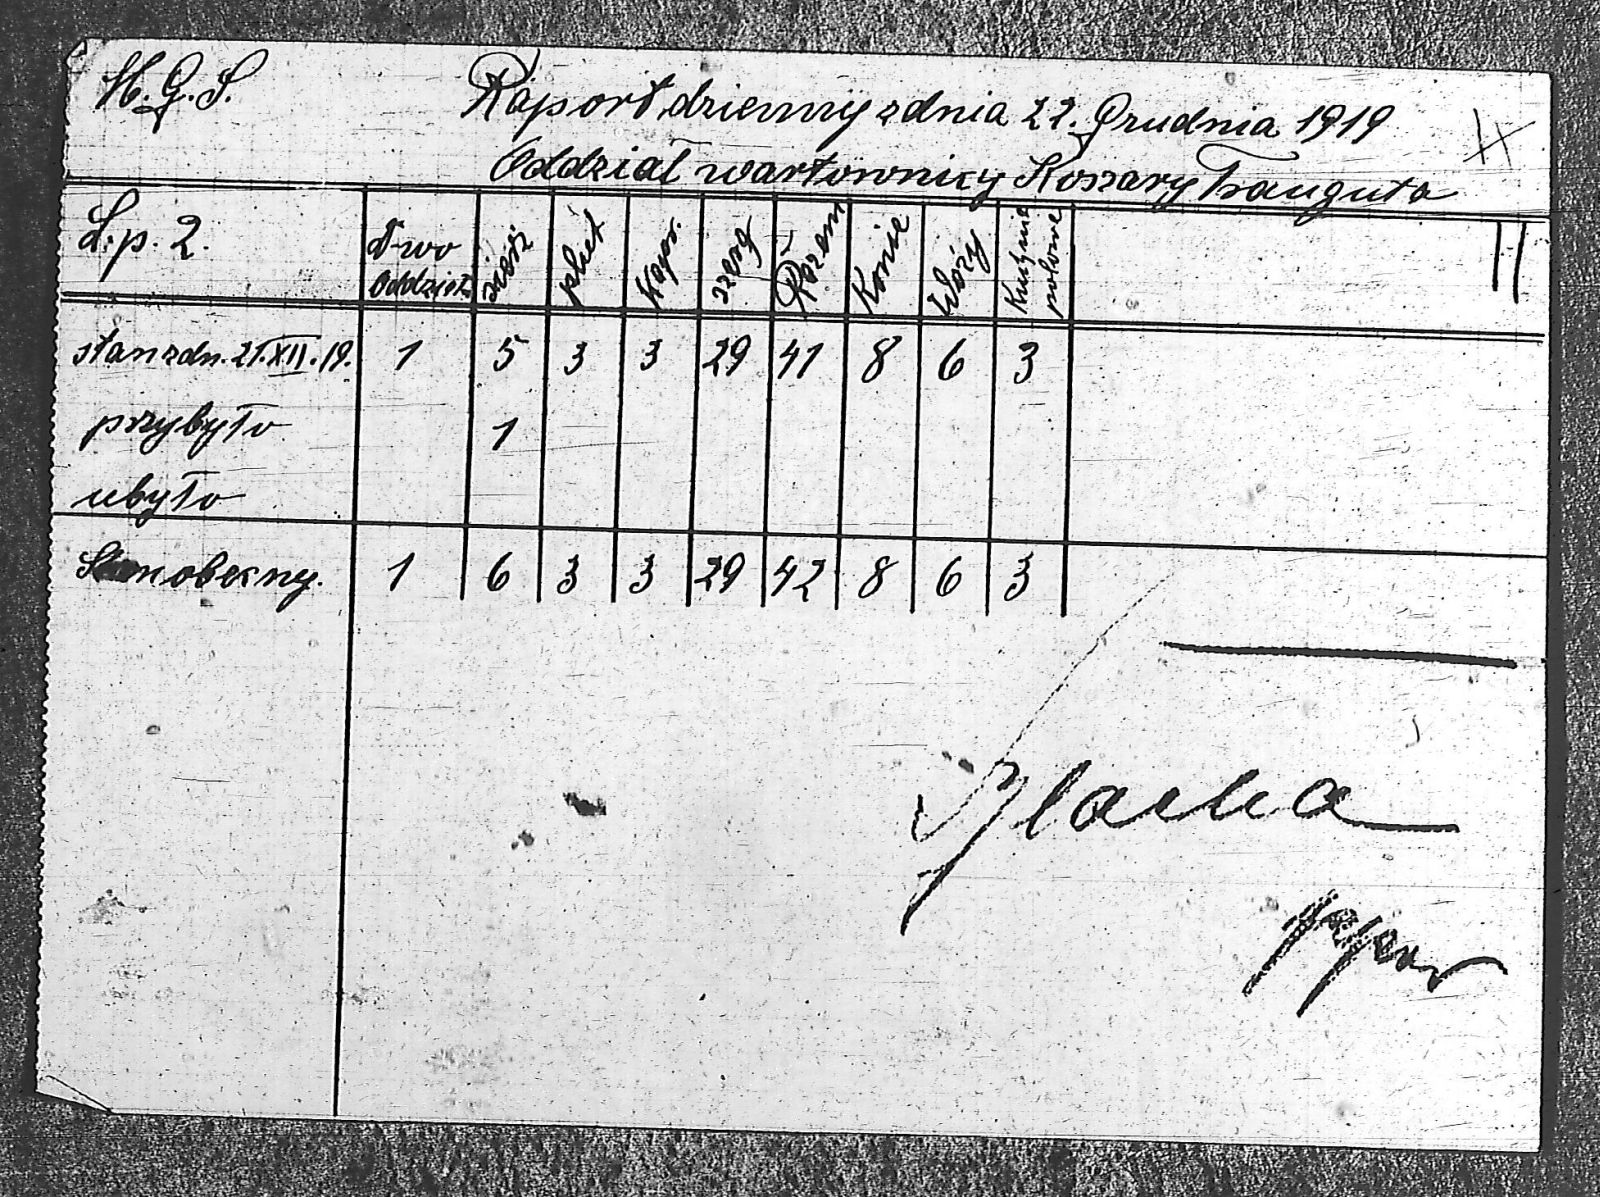 M.G.S.
Raport dzienny z dnia 22. Grudnia 1919
Oddział wartowniczy Koszary Trauguta
L.p. 2. D-wo Oddziału sierż plut Kapr. szereg Razem Konie Wózy Kuchnie polowe
II
stan z dn. 21.XII.19. 1 5 3 3 29 41 8 6 3
przybyło 1
ubyło
Stan obecny. 1 6 3 3 29 42 8 6 3